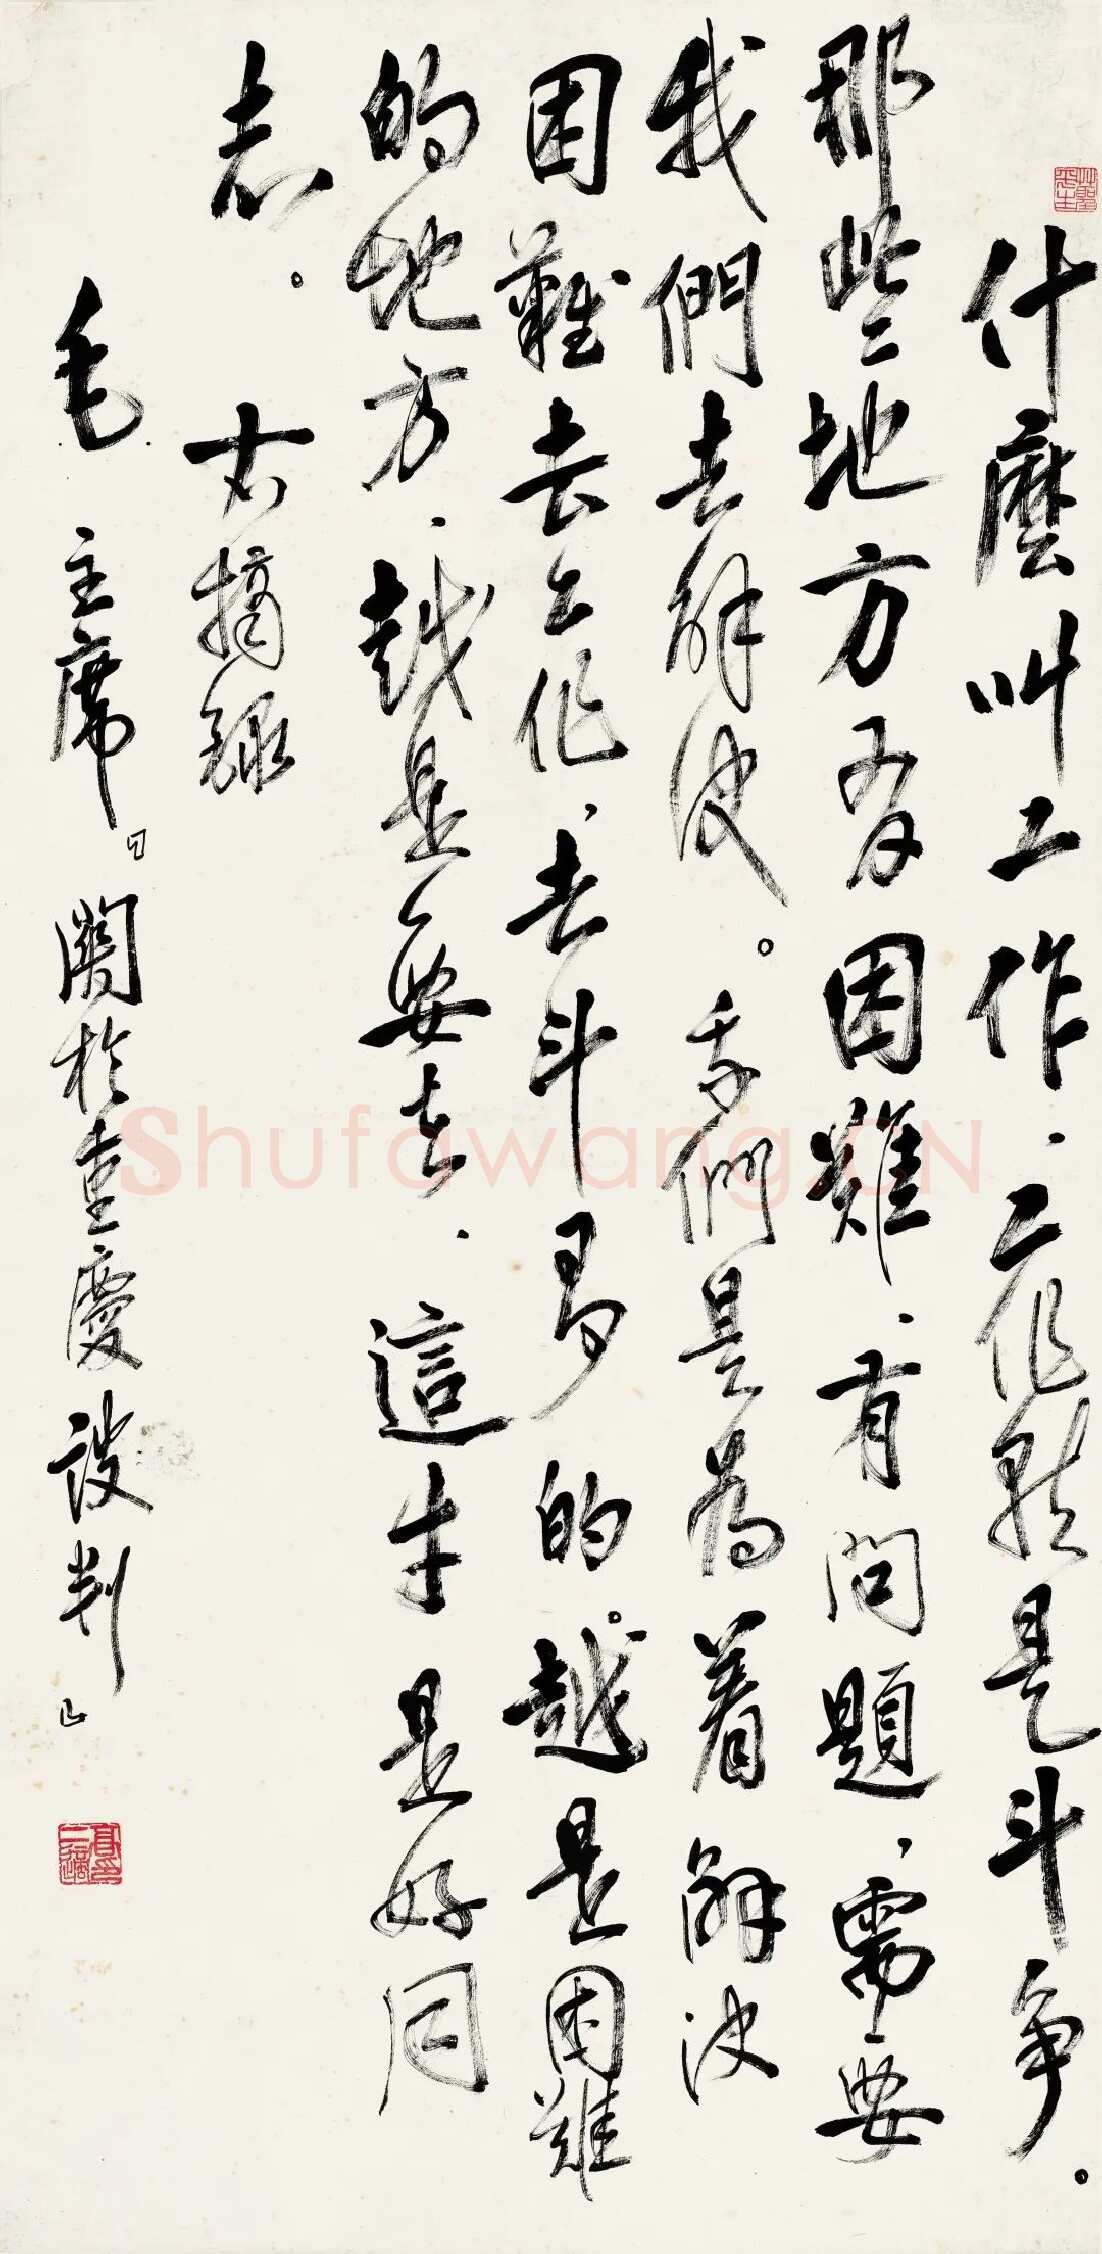 什麼叫工作、工作就是斗争。
那些地方有困難、有問題、需要
我們去解決。我們是為着解決
困難去工作、去斗爭的。越是困難
的地方、越是要去、這才是好同
志。 右摘録
毛主席「關於重慶談判」
Shufawang.CN